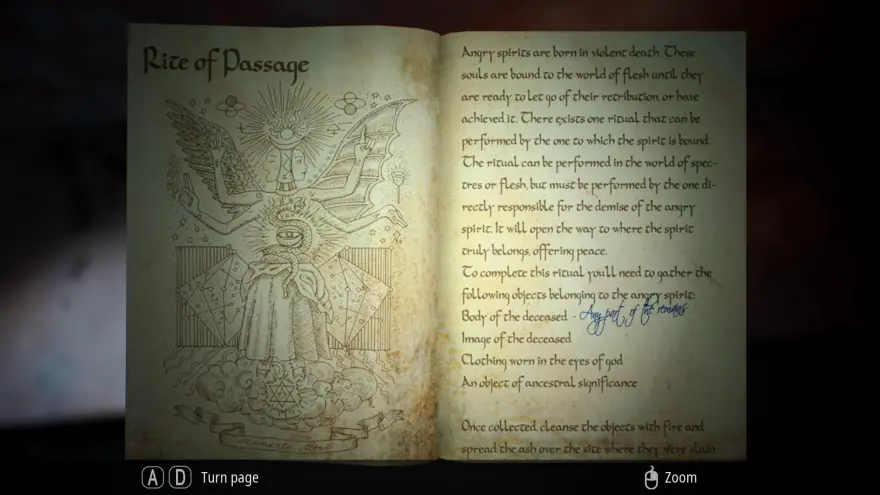 Rite of Passage
Memento Mori
Angry spirits are born in violent death. These
souls are bound to the world of flesh until they
are ready to let go of their retribution, or have
achieved it. There exists one ritual that can be
performed by the one to which the spirit is bound.
The ritual can be performed in the world of spec-
tres or flesh, but must be performed by the one di-
rectly responsible for the demise of the angry
spirit. It will open the way to where the spirit
truly belongs, offering peace.
To complete this ritual you'll need to gather the
following objects belonging to the angry spirit:
Body of the deceased - Any part of the remains
Image of the deceased
Clothing worn in the eyes of god
An object of ancestral significance
Once collected, cleanse the objects with fire and
spread the ash over the site where they were slain.
A D Turn page
Zoom